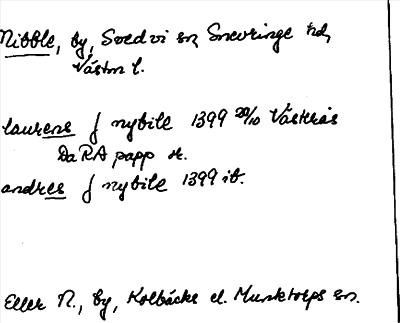 Nibble, by, Svedvi sn, Snevringe hd,
Västm l.
laurens j nybile 1399 20/10 Västerås
Da RA papp or.
andres j nybile 1399 ib.
Eller N., by, Kolbäcks el. Munktorps sn.